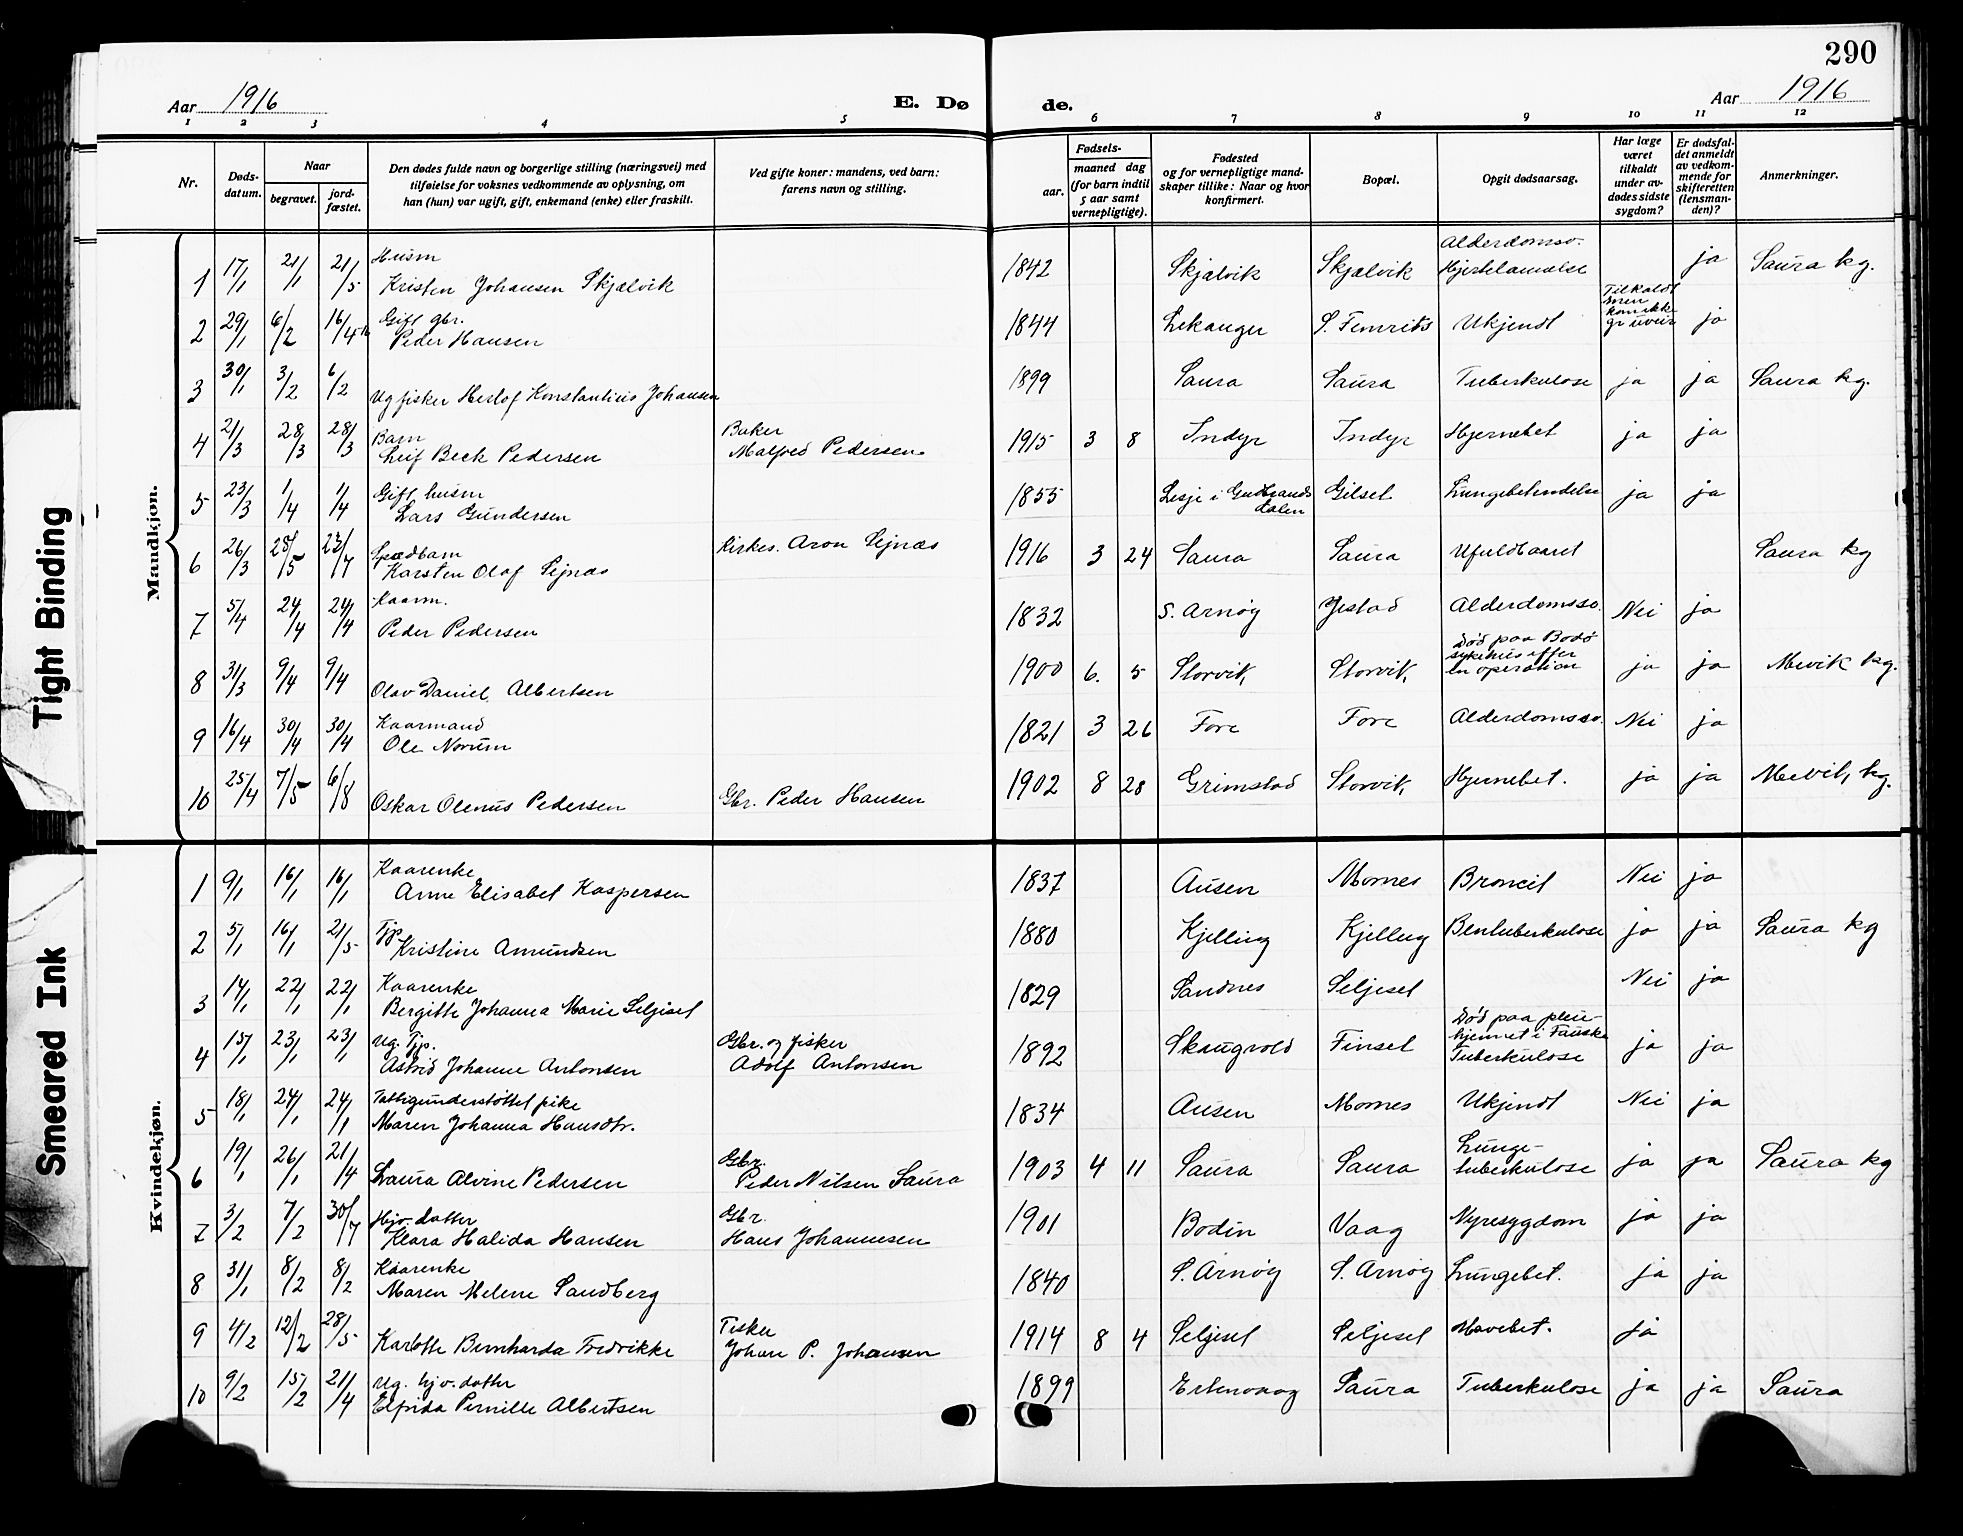 290
Aar 1916 E. Døde. Aar 1916
1 2 3 4 5 6 7 8 9 10 11 12
Nr.
Døds-
datum.
Naar
begravet.
jord-
fæstet.
Den dødes fulde navn og borgerlige stilling (næringsvei) med
tilføielse for voksnes vedkommende av oplysning, om
han (hun) var ugift, gift, enkemand (enke) eller fraskilt.
Ved gifte koner: mandens, ved barn:
farens navn og stilling.
Fødsels-
aar.
maaned dag
(for barn indtil
5 aar samt
vernepligtige).
Fødested
og for vernepligtige mand-
skaper tillike: Naar og hvor
konfirmert.
Bopæl.
Opgit dødsaarsag.
Har læge
været
tilkaldt
under av-
dødes sidste
sygdom?
Er dødsfal-
det anmeldt
av vedkom-
mende for
skifteretten
(lensman-
den)?
Anmerkninger.
Mandkjøn.
1 17/1 21/1 21/5 Husm Kristen Johansen Skjælvik 1842 Skjælvik Skjælvik Alderdomssv. Hjertelamelse ja Saura kg.
2 29/1 6/2 16/4 Gift gbr. Peder Hansen 1844 Lekanger S. Femris Ukjendt Tilkaldt men kom ikke gr uveir ja
3 30/1 3/2 6/2 Ug fisker Herlof Konstantius Johansen 1899 Saura Saura Tuberkulose ja ja Saura kg.
4 21/3 28/3 28/3 Barn Leif Beck Pedersen Baker Malfred Pedersen 1915 3 8 Indyr Indyr Hjernebet ja ja
5 23/3 1/4 1/4 Gift husm Lars Gundersen 1855 Lesje i Gudbrandsdalen Gilset Lungebetendelse ja ja
6 26/3 28/5 23/7 Spædbarn Karsten Olaf Sejnæs Kirkes. Aron Sejnæs 1916 3 24 Saura Saura Ufuldbaaret Saura kg
7 5/4 24/4 24/4 Kaarm. Peder Pedersen 1832 S. Arnøy Ystad Alderdomssv. Nei ja
8 31/3 9/4 9/4 Olav Daniel Albertsen 1900 6. 5 Storvik, Storvik, Død paa Bodø sykehus efter en operation ja ja Mevik kg.
9 16/4 30/4 30/4 Kaarmand Ole Norum 1821 3 26 Fore Fore Alderdomssv. Nei ja
10 25/4 7/5 6/8 Oskar Olenus Pedersen Gbr. Peder Hansen 1902 8 28 Grimstad Storvik, Hjernebet. ja ja Mevik kg.
Kvindekjøn.
1 9/1 16/1 16/1 Kaarenke Anne Elisabet Kaspersen 1837 Ausen Mornes Broncit Nei ja
2 5/1 16/1 21/5 Tjp Kristine Amundsen 1880 Kjelling Kjelling Bentuberkulose ja ja Saura kg
3 14/1 22/1 22/1 Kaarenke Bergitte Johanna Marie Seljeset 1829 Sandnes Seljeset Nei ja
4 15/1 23/1 23/1 Ug. Tjp. Astrid Johanne Antonsen Gbr. og fisker Adolf Antonsen 1892 Skaugvold Finset Død paa pleie-hjemmet i Fauske Tuberkulose ja ja
5 18/1 24/1 24/1 Fattigunderstøttet pike Maren Johanna Hansdtr. 1834 Ausen Mornes Ukjendt Nei ja
6 19/1 26/1 21/4 Laura Alvine Pedersen Gbr. Peder Nilsen Saura 1903 4 11 Saura Saura Lunge-tuberkulose ja ja Saura kg
7 3/2 7/2 30/7 Hjv. datter Klara Halida Hansen Gbr. Hans Johannesen 1901 Bodin Vaag Nyresygdom ja ja
8 31/1 8/2 8/2 Kaarenke Maren Melene Sandberg 1840 S. Arnøy S. Arnøy Lungebet. ja ja
9 4/2 12/2 28/5 Karlotte Bernharda Fredrikke Fisker Johan P. Johansen 1914 8 4 Seljeset Seljeset Mavebet. ja
10 9/2 15/2 21/4 Ug. hjv. datter Elfrida Pernille Albertsen 1899 Ertenvaag Saura Tuberkulose ja ja Saura
Tight Binding
Smeared Ink